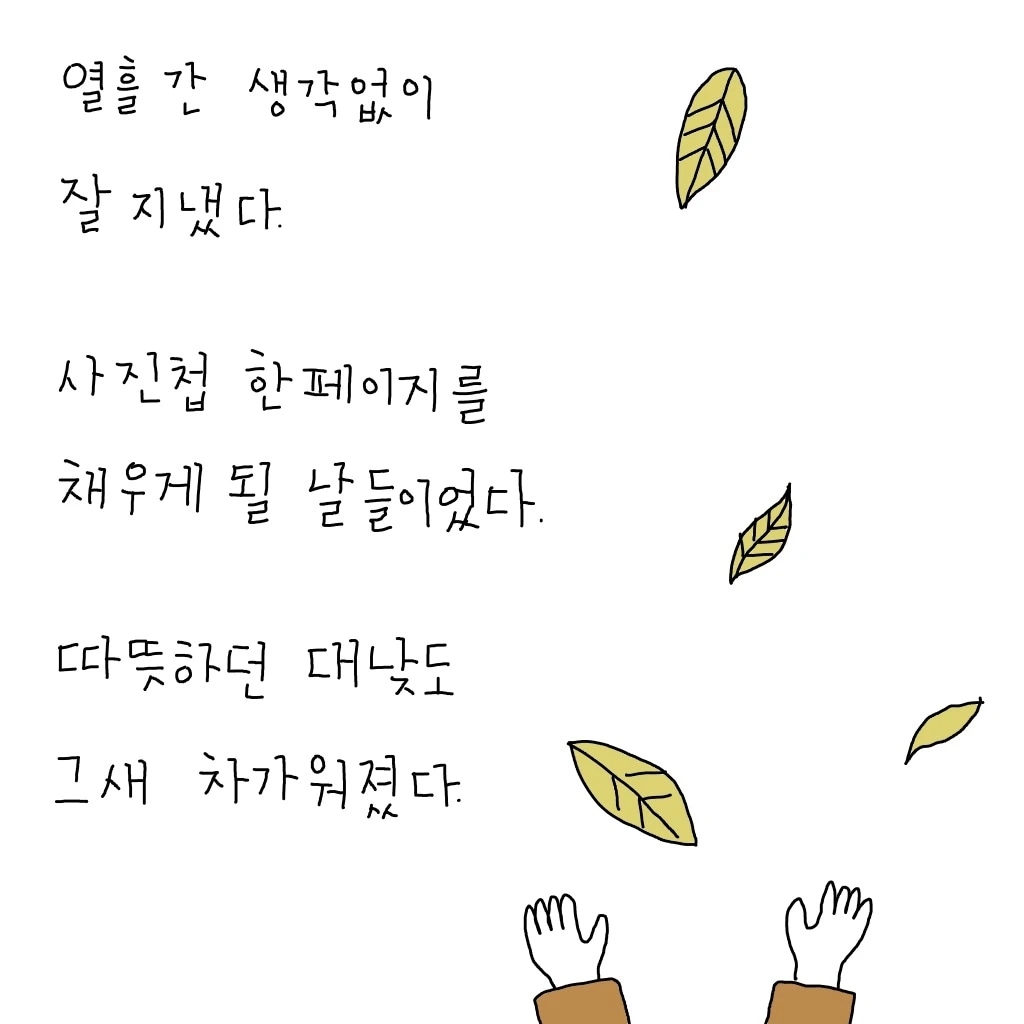 열흘 간 생각없이
잘 지냈다.
사진첩 한페이지를
채우게 될 날들이었다.
따뜻하던 대낮도
그새 차가워졌다.